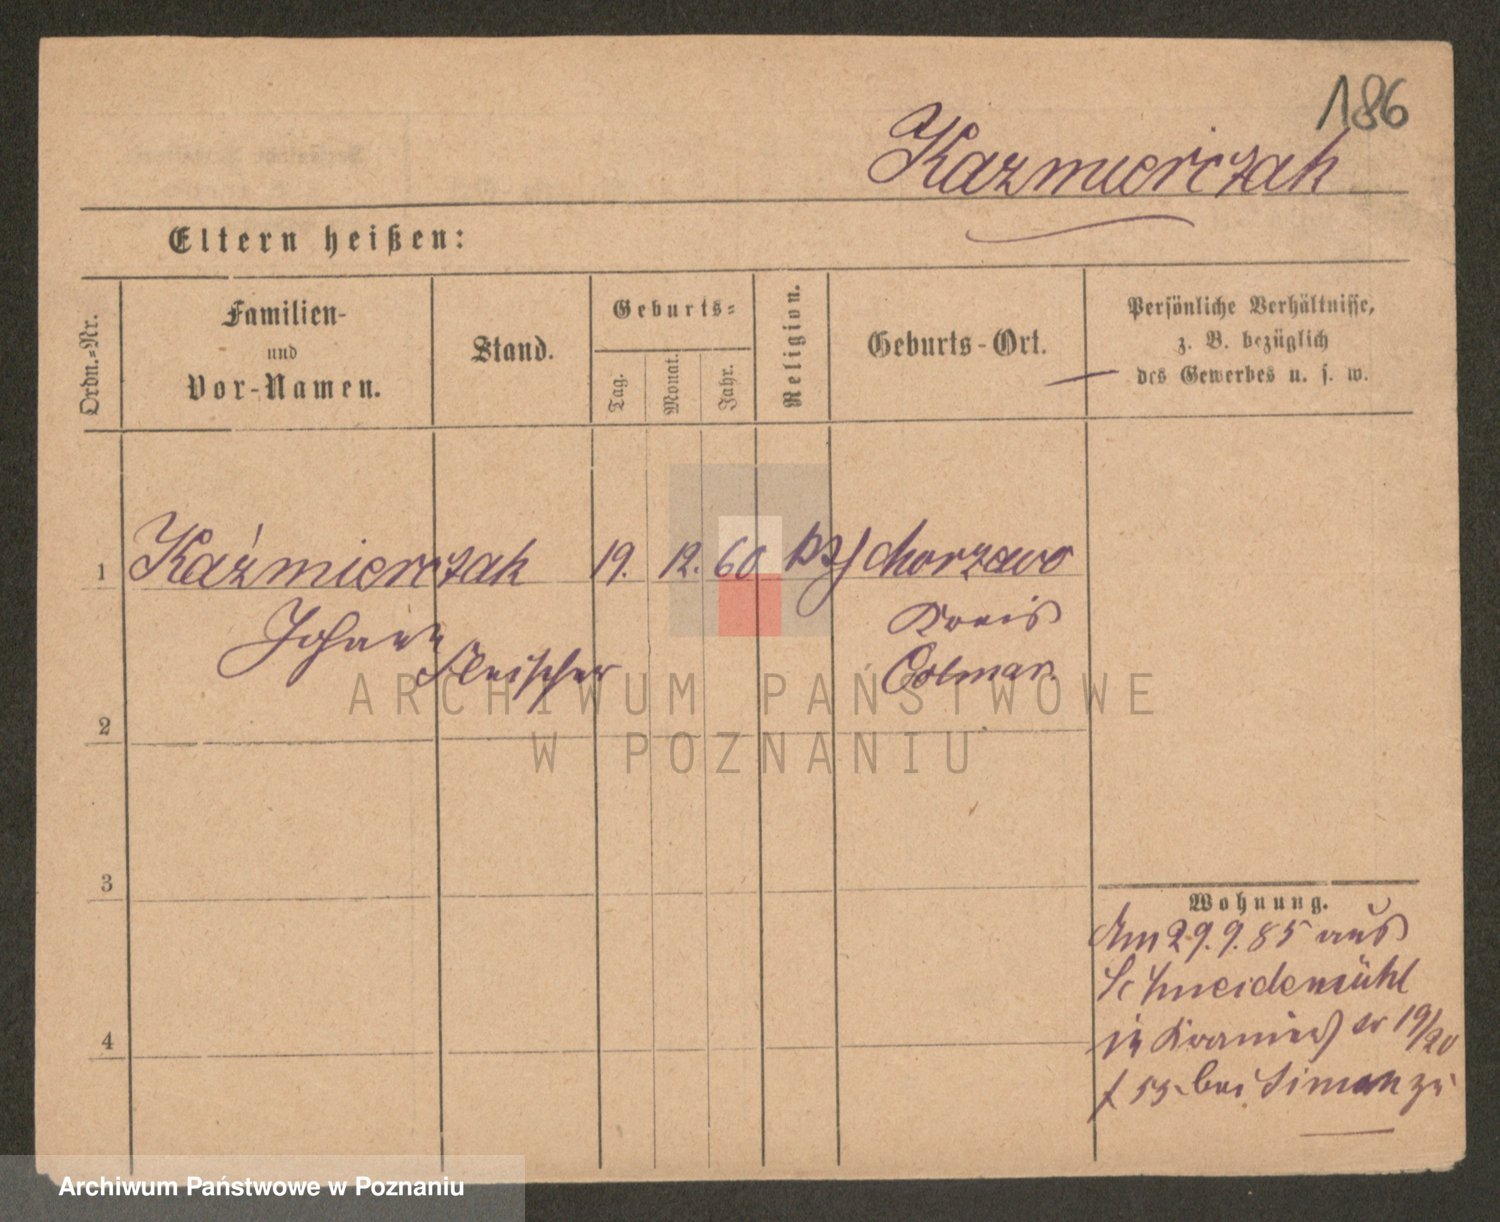 186
Kazmierczak
Eltern heißen:
Ordn.=Nr.
Familien-
und
Vor-Namen.
Stand.
Geburts=
Tag.
Monat.
Jahr.
Religion.
Geburts-Ort.
Persönliche Verhältnisse,
z. B. bezüglich
des Gewerbes u. s. w.
1 Kaźmierczak 19. 12. 60
Johann
Fleischer
Kreis
Colmar.
ARCHIWUM PAŃSTWOWE
W POZNANIU
2
3
4
Wohnung.
Am 29.9.85 aus
Schneidemühl
in 19/20
bei Siman zu
Archiwum Państwowe w Poznaniu